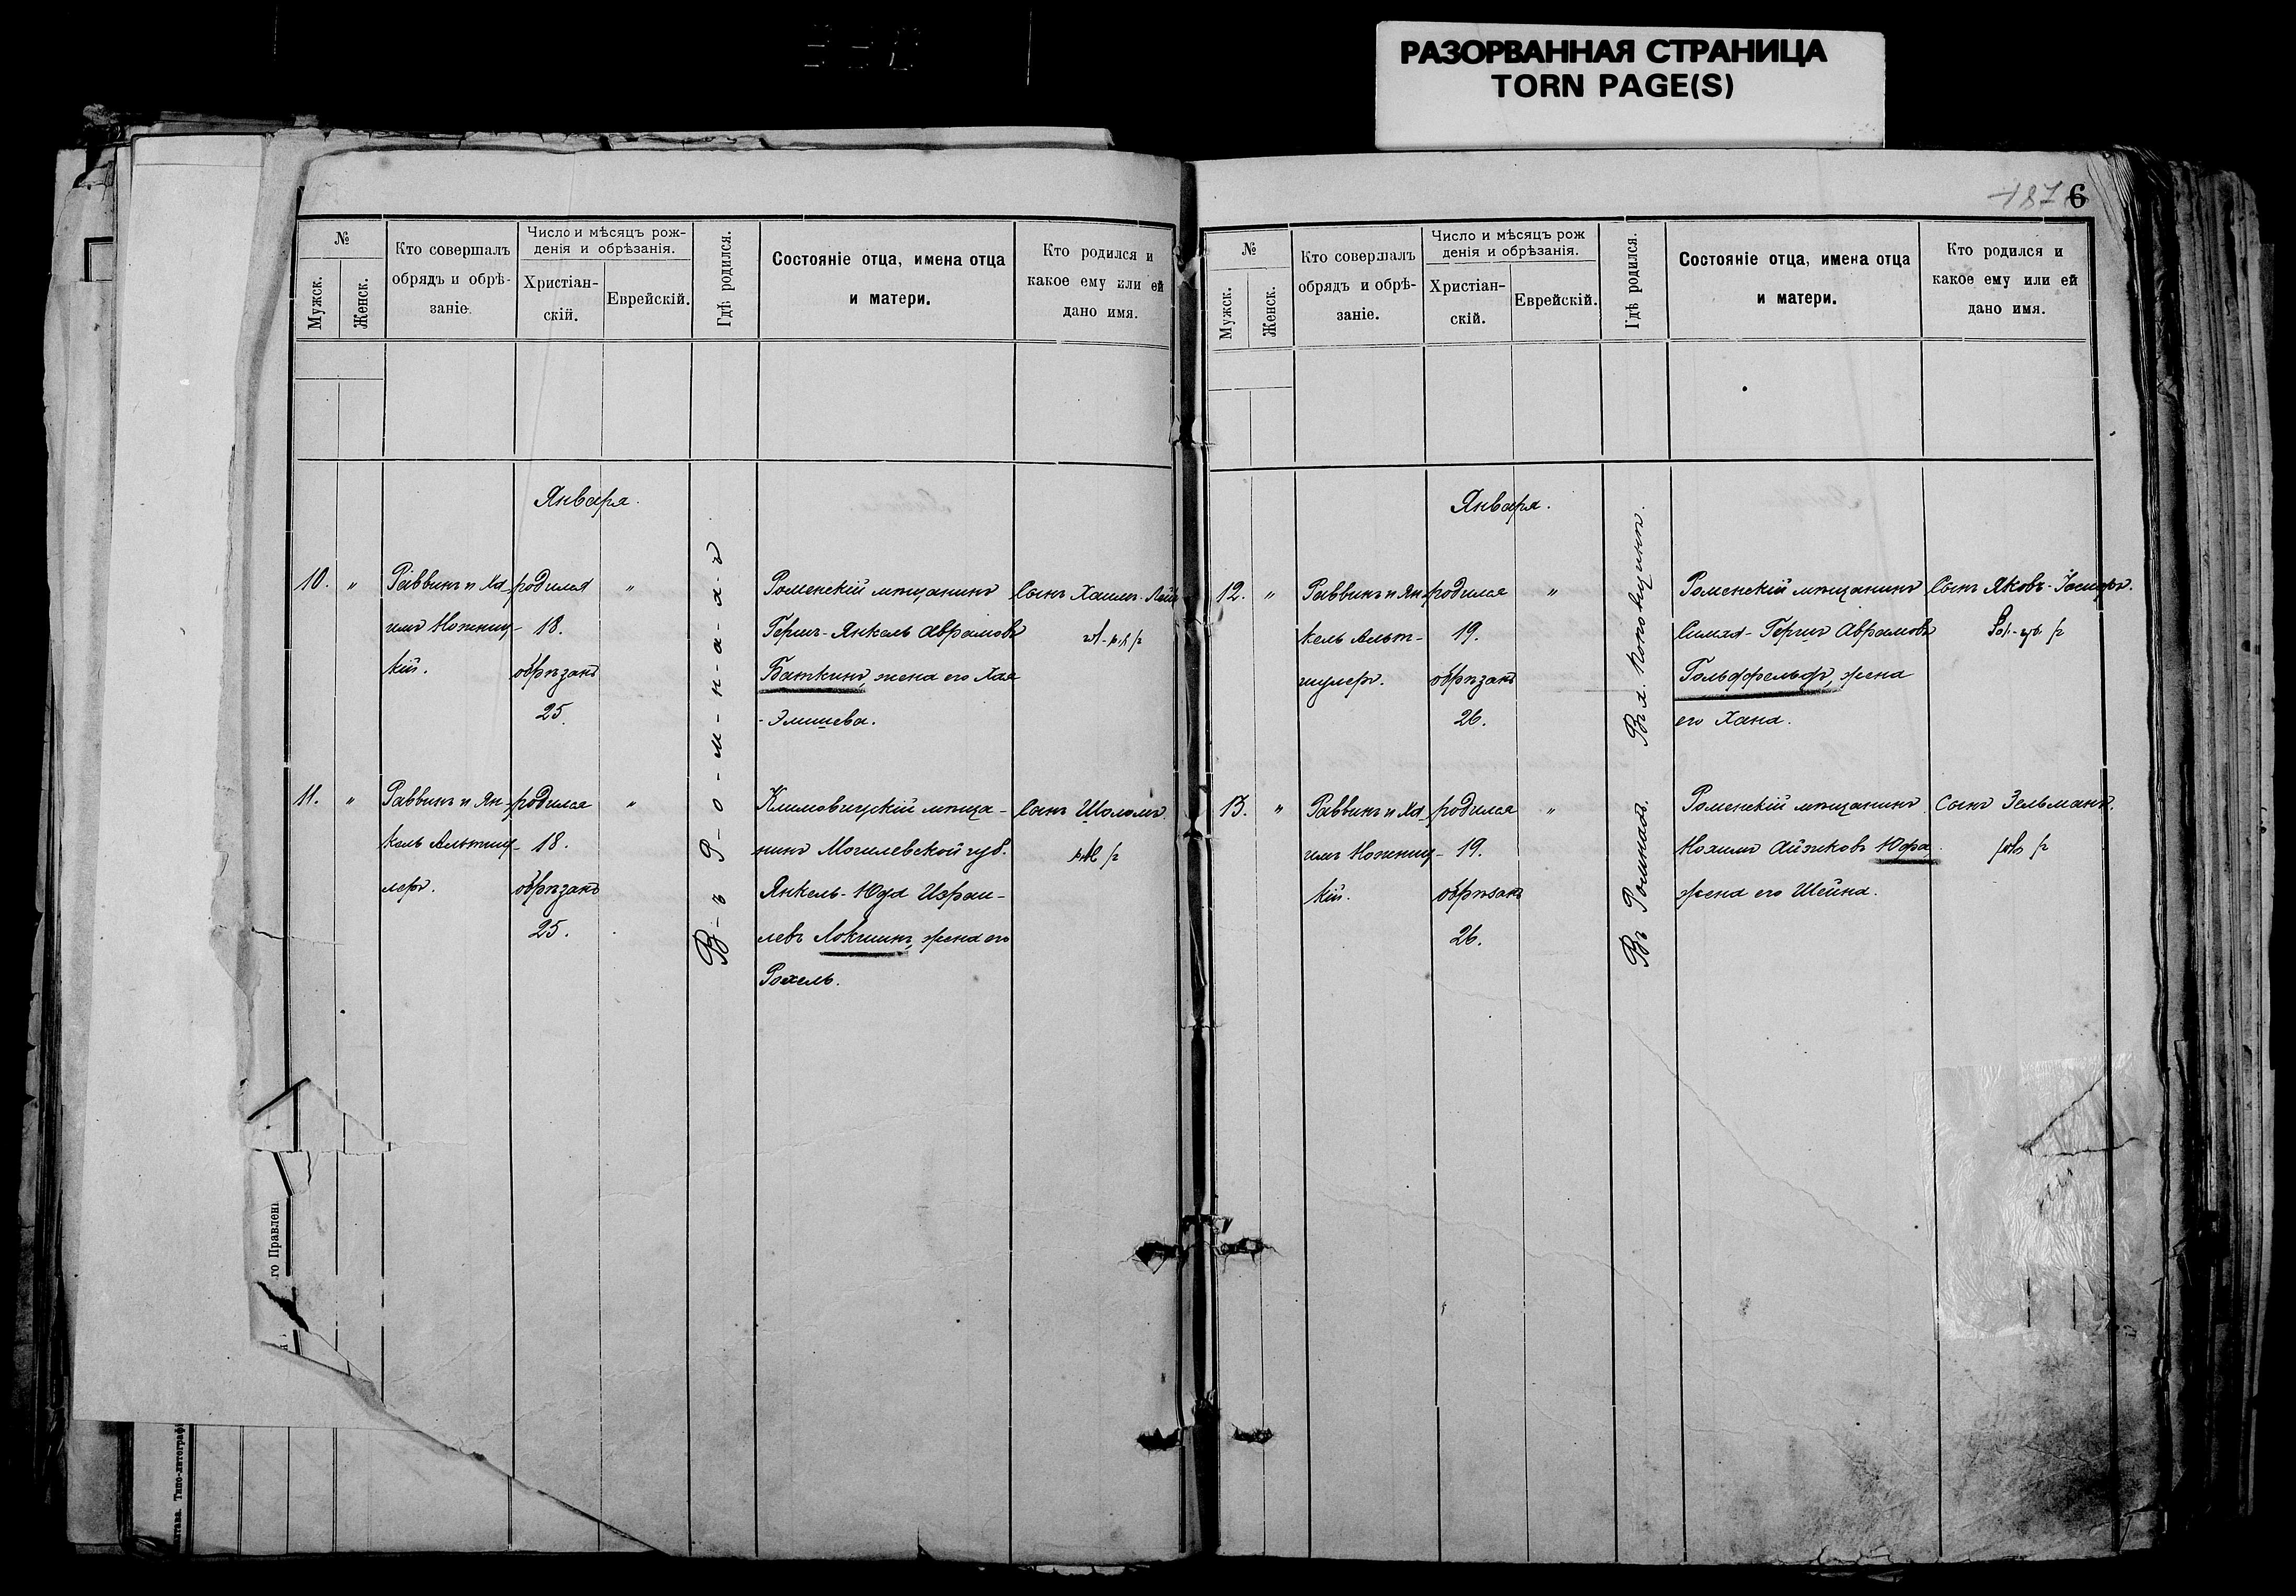 РАЗОРВАННАЯ СТРАНИЦА
TORN PAGE(S)
№
Мужск.
Женск.
Кто совершалъ
обрядъ и обрѣ-
заніе.
Число и мѣсяцъ рож-
денія и обрѣзанія.
Христіан-
скій.
Еврейскій.
Гдѣ родился.
Состояніе отца, имена отца
и матери.
Кто родился и
какое ему или ей
дано имя.
Января.
10.
"
Раввинъ и Ха-
имъ Ноженц-
кій.
родился
18.
обрѣзанъ
25.
"
В-ъ Р-о-м-н-а-х-ъ
Роменскій мѣщанинъ
Гершъ-Янкель Аврамовъ
Баткинъ, жена его Хая
-Элишева.
Сынъ Хаимъ-Лейб
11.
"
Раввинъ и Ян-
кель Альтшу-
леръ.
родился
18.
обрѣзанъ
25.
"
Климовичускій мѣща-
нинъ Могилевской губ.
Янкель-Юда Израи-
левъ Локшинъ, жена его
Рохель.
Сынъ Шоломъ.
го Правлені
тава. Типо-литографі
6
№
Мужск.
Женск.
Кто совершалъ
обрядъ и обрѣ-
заніе.
Число и мѣсяцъ рож
денія и обрѣзанія.
Христіан-
скій.
Еврейскій.
Гдѣ родился.
Состояніе отца, имена отца
и матери.
Кто родился и
какое ему или ей
дано имя.
Января.
12.
"
Раввинъ и Ян-
кель Альт-
шулеръ.
родился
19.
обрѣзанъ
26.
"
Въ х.
Роменскій мѣщанинъ
Симха-Гершъ Аврамовъ
Гольдфельдъ, жена
его Хана.
Сынъ Яковъ-
13.
"
Раввинъ и Ха-
имъ Ноженц-
кій.
родился
19.
обрѣзанъ
26.
"
Въ Ромнахъ.
Роменскій мѣщанинъ
Нохимъ Айзиковъ Юфа,
жена его Шейна.
Сынъ Зельманъ.